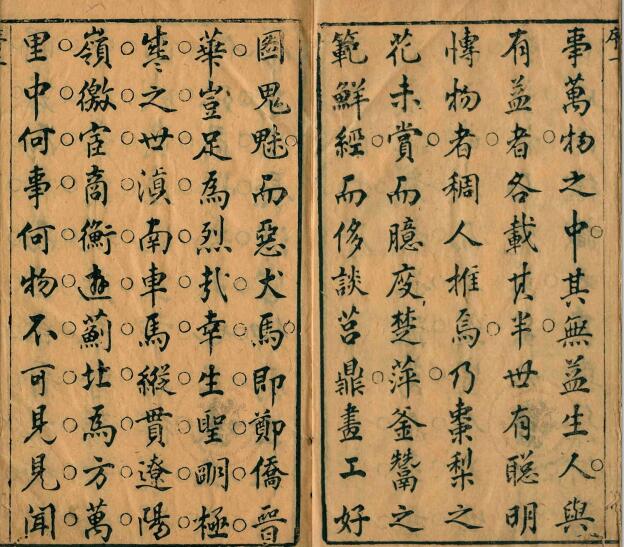 事萬物之中其無益生人與
有益者各載其半世有聰明
博物者稠人推焉乃棗梨之
花未賞而臆度楚萍釜鬵之
範鮮經而侈談莒鼎畫工好
圖鬼魅而惡犬馬即鄭僑晉
華豈足為烈哉幸生聖明極
盛之世滇南車馬縱貫遼陽
嶺徼宦商衡遊薊北為方萬
里中何事何物不可見見聞